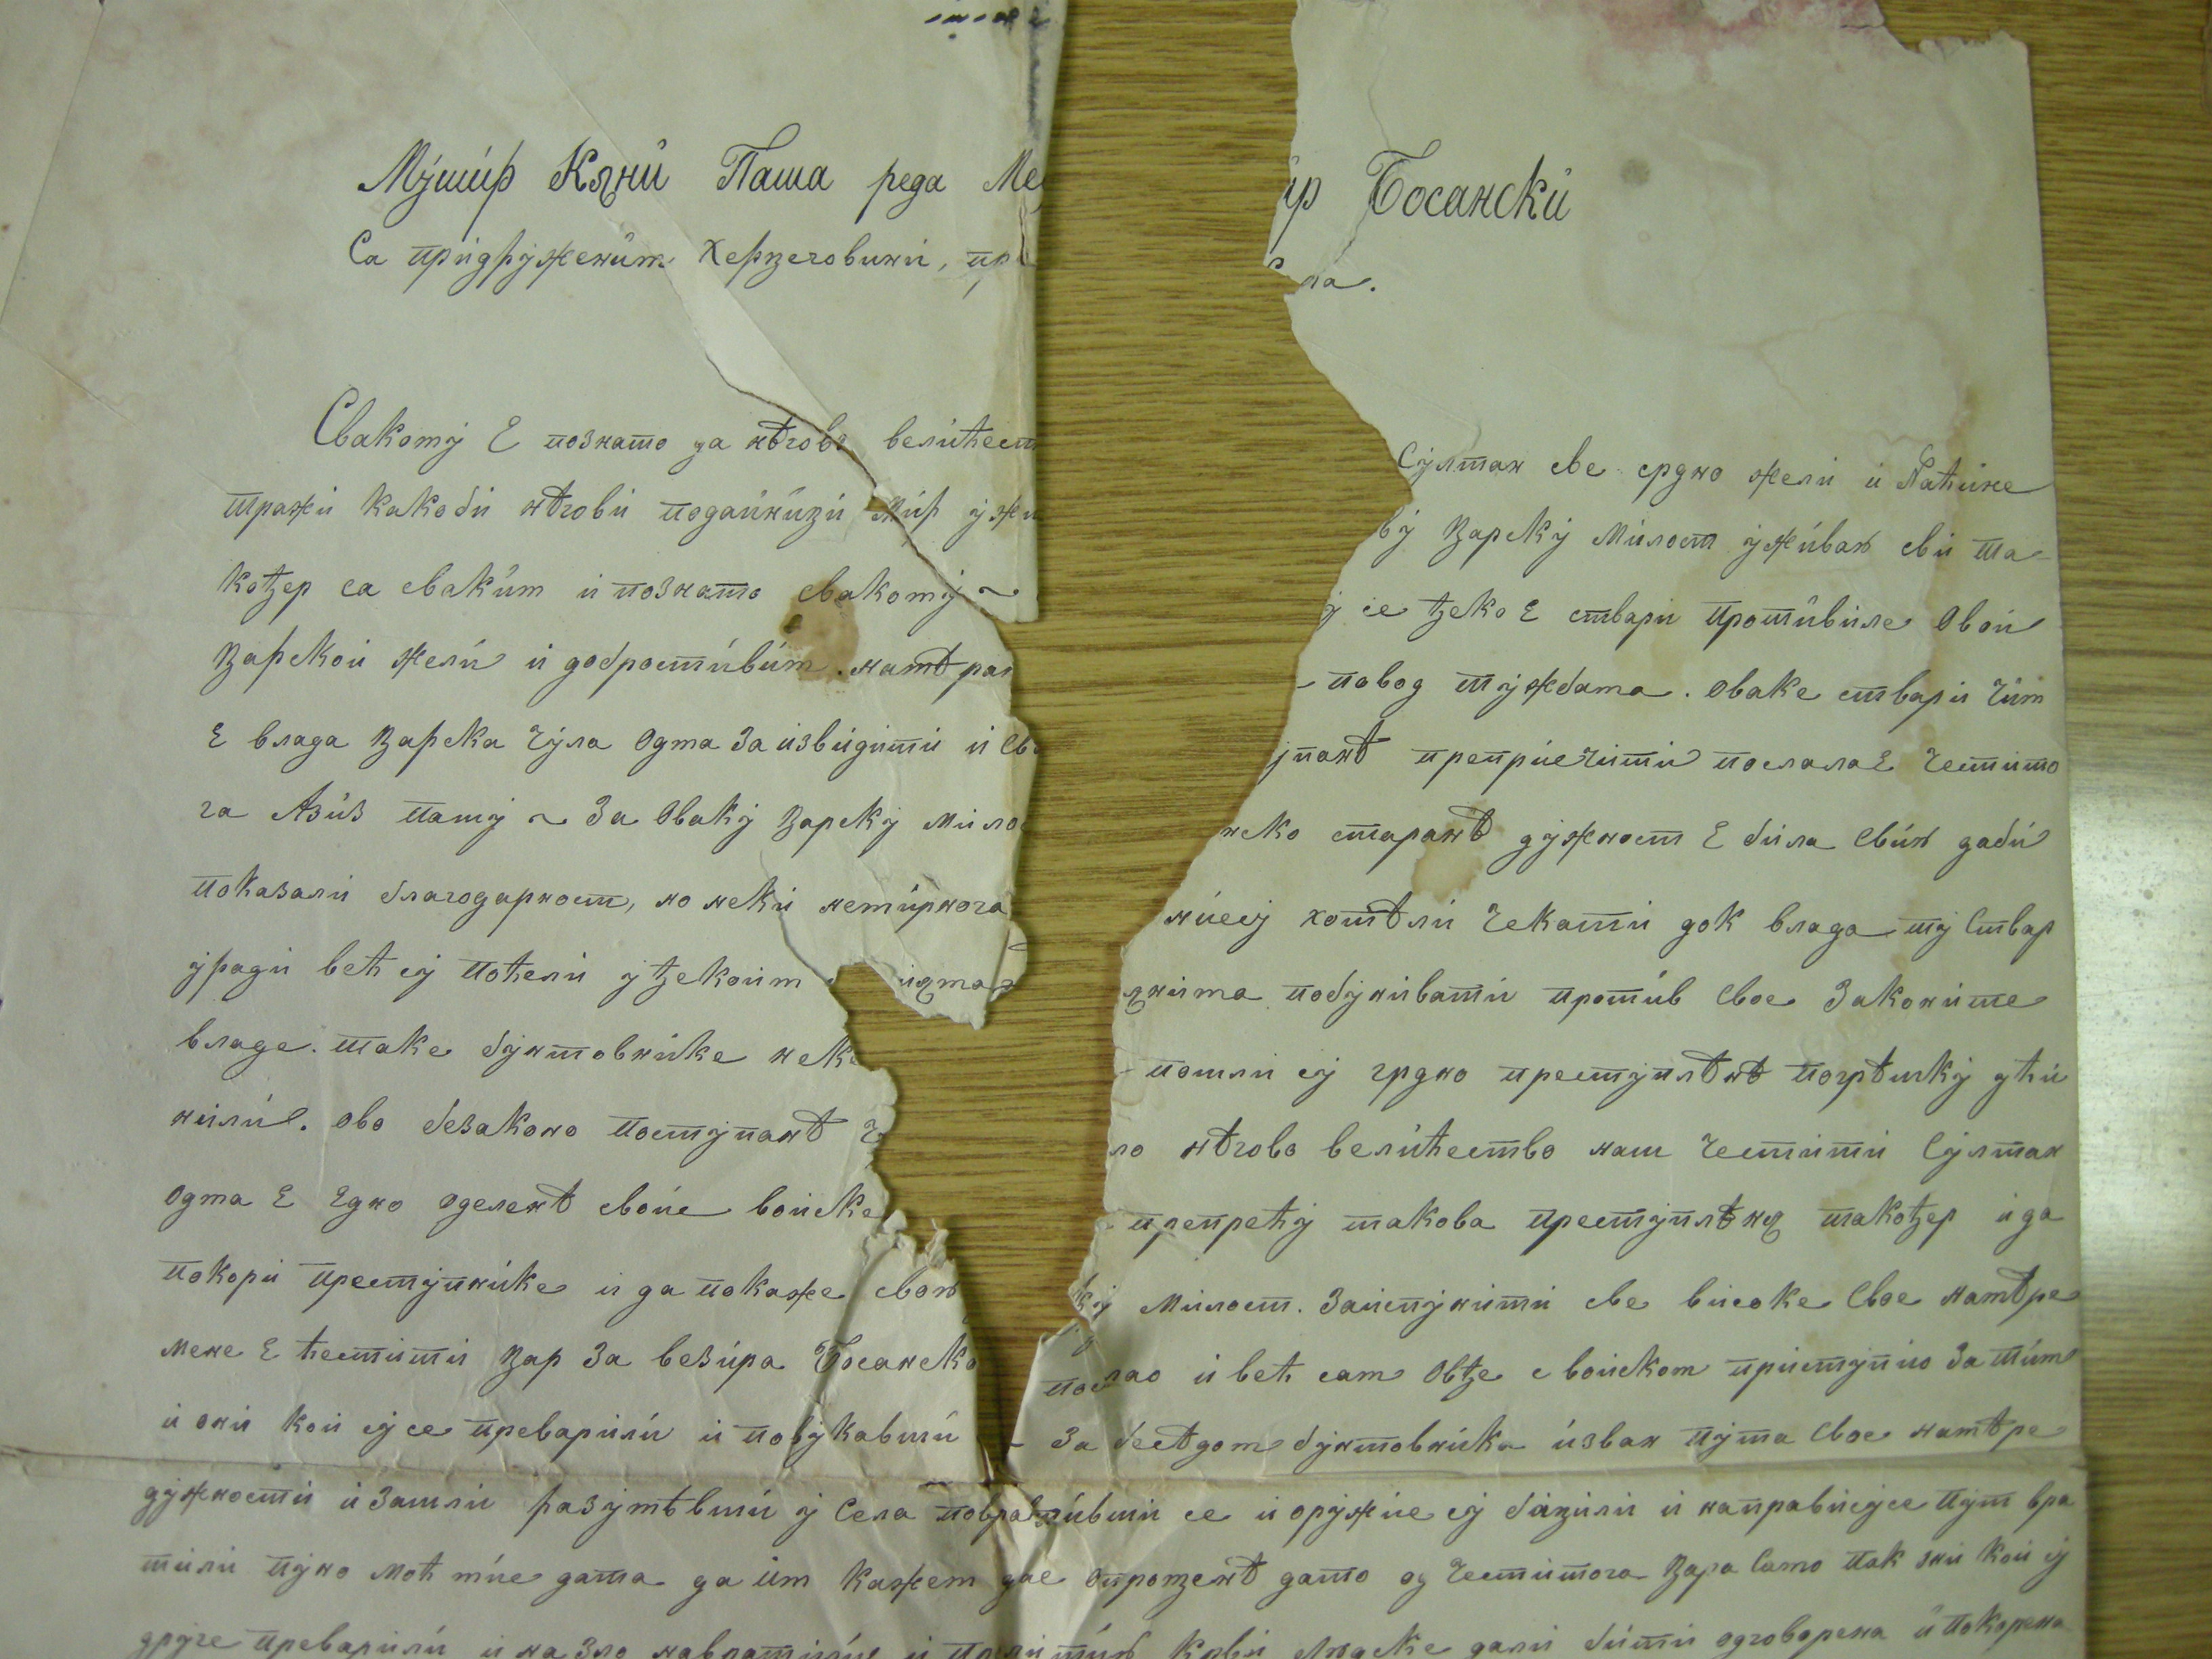 Мушир Кяни Паша реда Ме ир Босански
Са придруженим Херзеговини, пр
Свакому Е познато да нѣгово велићест Султан све срдно жели и Наћине
тражи какоби нѣгови подайнизи мир ужи ву зарску Милост уживаю сви та-
кођер са сваким и познато свакому ~ се ђеко Е ствари противиле Овои
зарской жели и добростивим. намѣра повод тужбама. Оваке ствари чим
Е влада зарска чула Одма За извидити и Сво упанѣ препріечити послала Е честито
га Азиз пашу ~ За Оваку зарску мило нско таранѣ дужност Е била Свию даби
показали благодарност, но неки немирнога нису хотѣли Чекати док влада ту Ствар
уради већ су почели у ђекоим янима побунивати против Свое Законите
владе. таке бунтовнике нек пошли су грдно преступлѣнѣ погрѣшку ући
нили. Ово безаконо поступанѣ ч ло нѣгово велићество наш Честити Султан
Одма Е Едно оделенѣ своіе воиске препрећу такова преступлѣня такођер и да
покори преступнике и да покаже свою ку Милост. Заиспунити све високе Свое намѣре
мене Е ћестити зар За везира Босанско послао и већ сам Овђе с воиском приступио За тим
и они кои су се преварили и повукавши ~ За бесѣдом бунтовника изван пута Свое намѣре
дужности и зашли разумѣвши у Села повративши се и оружие су бацили и направисусе пут вра
тили пуно моћ міе дата да им кажем дае опрошзенѣ дато од Честитога зара Само пак они кои су
друге преварили и на зло навратили и Крви Людске дали бити одговорена и покорена